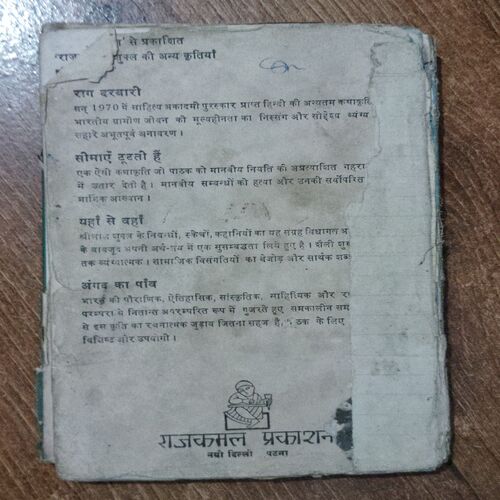 से प्रकाशित
शुक्ल की अन्य कृतियाँ
राग दरबारी
सन् 1970 में साहित्य अकादमी पुरस्कार प्राप्त हिन्दी की अन्यतम कथाकृति
भारतीय ग्रामीण जीवन की मूल्यहीनता का निस्संग और सोद्देश्य व्यंग्य
सहारे अभूतपूर्व अनावरण।
सीमाएँ टूटती हैं
एक ऐसी कथाकृति जो पाठक को मानवीय नियति की अप्रत्याशित गहरा
में उतार देती है। मानवीय सम्बन्धों की हत्या और उनकी सर्वोपरित
मार्मिक आख्यान।
यहाँ से वहाँ
श्रीलाल शुक्ल के निबन्धों, स्केचों, कहानियों का यह संग्रह विधागत अ
के बावजूद अपनी अर्थ-गंध में एक सुसम्बद्धता लिये हुए है। शैली शुरू
तक व्यंग्यात्मक। सामाजिक विसंगतियों का बेजोड़ और सार्थक शब्द
अंगद का पाँव
भारत की पौराणिक, ऐतिहासिक, सांस्कृतिक, साहित्यिक और र
परम्परा से नितान्त अपरम्परित रूप में गुजरते हुए समकालीन सम
से इस कृति का रचनात्मक जुड़ाव जितना सहज है, ठक के लिए
विशिष्ट और उपयोगी।
राजकमल प्रकाशन
नयी दिल्ली पटना